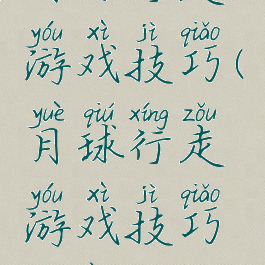 yóu xì jì qiǎo
游戏技巧(
yuè qiú xíng zǒu
月球行走
yóu xì jì qiǎo
游戏技巧